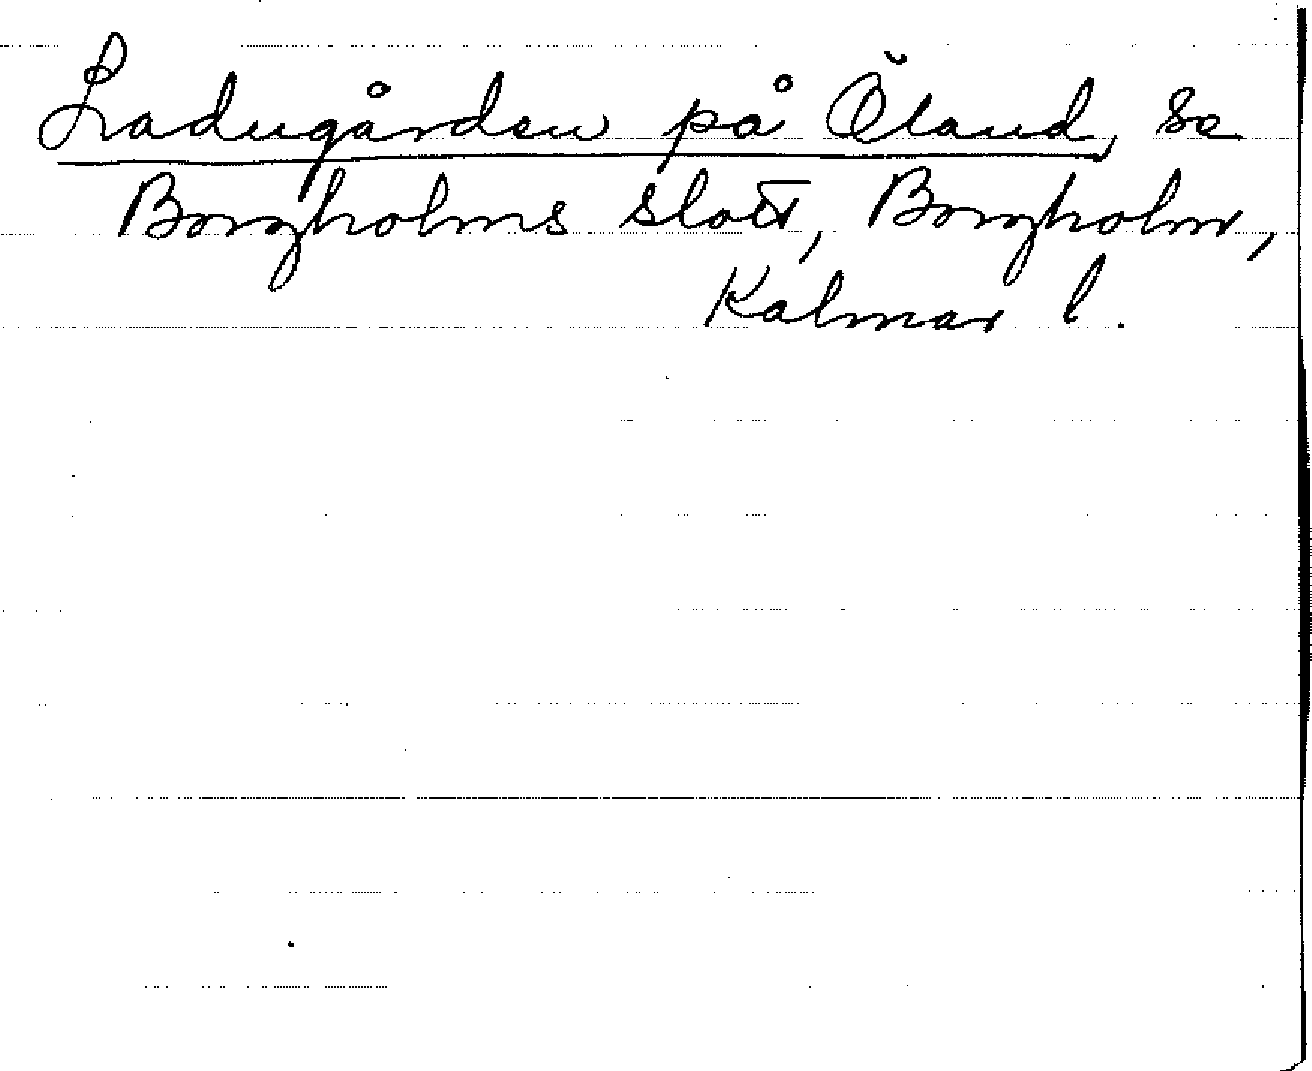 Ladugården på Öland, se
Borgholms slott, Borgholm,
Kalmar l.